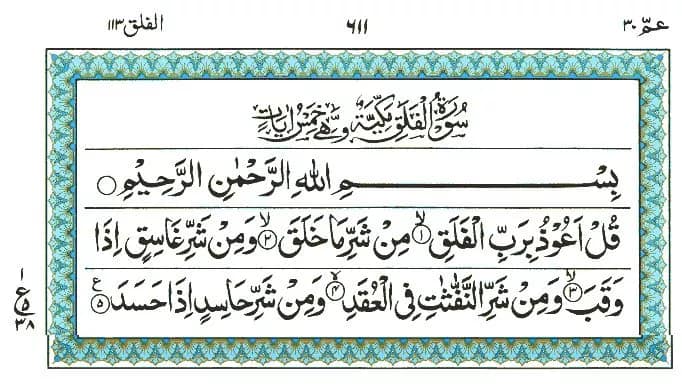 عمّ ٣٠ ٦١١ الفلق ١١٣
سُوْرَةُ الْفَلَقِ مَكِّيَّةٌ وَّهِيَ خَمْسُ اٰيَاتٍ
بِسْمِ اللّٰهِ الرَّحْمٰنِ الرَّحِيْمِ ○
قُلْ اَعُوْذُ بِرَبِّ الْفَلَقِ ۙ﴿۱﴾ مِنْ شَرِّ مَا خَلَقَ ۙ﴿۲﴾ وَمِنْ شَرِّ غَاسِقٍ اِذَا
وَقَبَ ۙ﴿۳﴾ وَمِنْ شَرِّ النَّفّٰثٰتِ فِى الْعُقَدِ ۙ﴿۴﴾ وَمِنْ شَرِّ حَاسِدٍ اِذَا حَسَدَ ﴿۵﴾ ع
١
ع ۵
٣٨